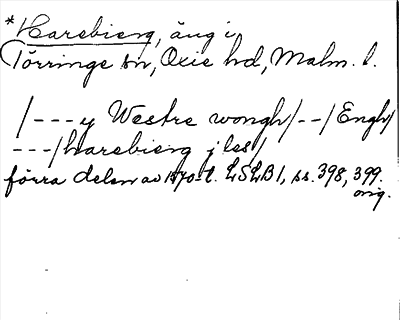 *Harebierg, äng i
Törringe sn, Oxie hd, Malm. l.
/---y Westre wongh/--/Engh/
---/harebierg j les/
förra delen av 1570-t. LSLB1, ss. 398, 399.
orig.